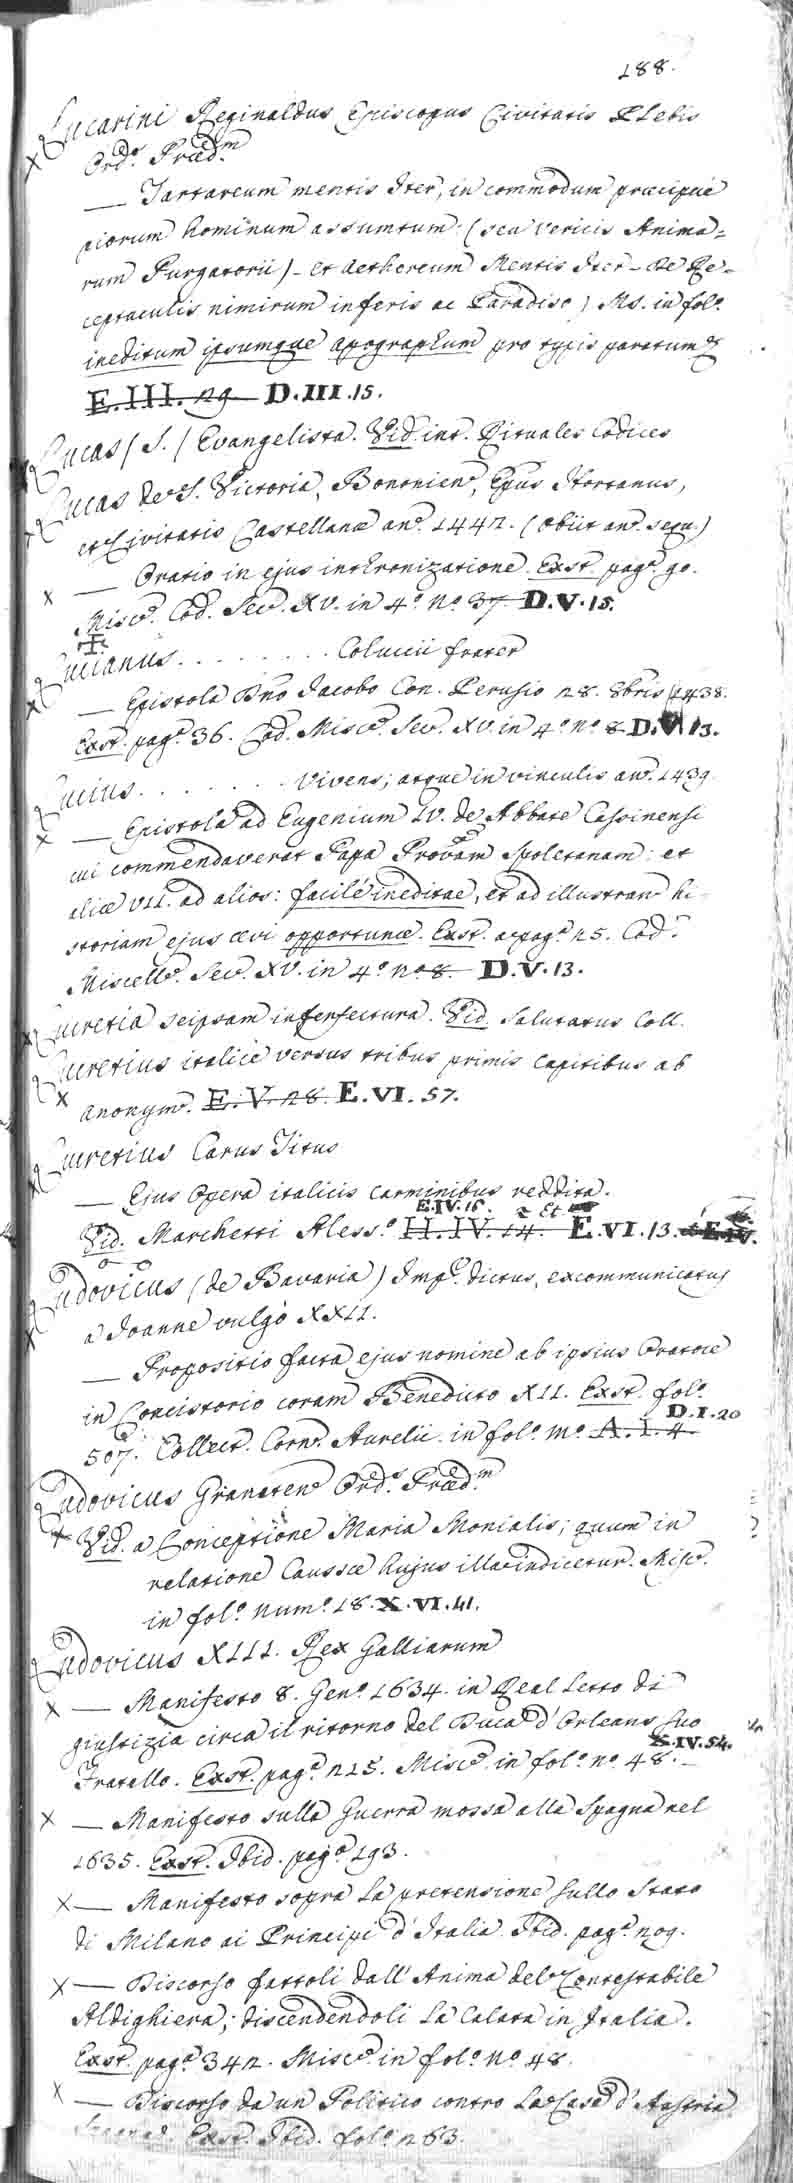 188.
Lucarini Reginaldus Episcopus Civitatis Plebis
Ord.s Præd.m
— Tartareum mentis Iter, in commodum præcipuè
piorum hominum assumtum (seu vericis Anima=
rum Purgatorii) - et Aethereum Mentis Iter - de Re=
ceptaculis nimirum inferis ac Paradiso) Ms. in fol.o
ineditum ipsumque apographum pro typis paratum
E.III.29. D.III.15.
Lucas (S.) Evangelista. Vid. int. Rituales Codices
Lucas de S. Victoria, Bononien, Epus Hortanus,
et Civitatis Castellanæ an.o 1442. (Obiit an.o sequ.)
— Oratio in ejus inthronizatione. Exst. pag.a 90.
Misc. Cod. Sec. XV. in 4.o N.o 37. D.V.15.
Lucianus . . . . . . . . Colucii frater
— Epistola Dno Jacobo Con. Perusio 28. 8bris 1438.
Exst. pag.a 36. Cod. Misc. Sec. XV. in 4.o n.o 8 D.V.13.
Lucius . . . . . . . . vivens; atque in vinculis an.o 1439.
— Epistola ad Eugenium IV. de Abbate Cassinensi
cui commendaverat Papa Provam Spoletanam: et
aliæ VII. ad alios: facilè ineditae, et ad illustran hi-
storiam ejus ævi opportunæ. Exst. a pag.a 25. Cod.
Miscell. Sec. XV. in 4.o n.o 8. D.V.13.
Lucretia seipsam interfectura. Vid. Salutatus Coll.
Lucretius italicè versus tribus primis Capitibus ab
anonym. E.V.28. E.VI.57.
Lucretius Carus Titus
— Ejus Opera italicis carminibus reddita.
E.IV.16. 2 et
Vid. Marchetti Aless.o H.IV.14. E.VI.13. E.IV.
Ludovicus (de Bavaria) Imp. dictus, excommunicatus
a Joanne vulgò XXII.
— Propositio facta ejus nomine ab ipsius Oratore
in Concistorio coram Benedicto XII. Exst. fol.o
D.I.20
507. Collect. Corn. Aurelii in fol.o m.o A.I.4.
Ludovicus Granaten Ord.s Præd.m
Vid. a Conceptione Maria Monialis; quum in
relatione Caussæ hujus illa indicetur. Misc.
in fol.o num.o 18. X.VI.41.
Ludovicus XIII. Rex Galliarum
— Manifesto 8. Gen.o 1634. in Real Letto di
giustizia circa il ritorno del Duca d'Orleans suo
X.IV.54.
Fratello. Exst. pag.a 215. Misc. in fol.o n.o 48.
— Manifesto sulla Guerra mossa alla Spagna nel
1635. Exst. Ibid. pag.a 193.
— Manifesto sopra la pretensione sullo Stato
di Milano ai Principi d'Italia. Ibid. pag.a 209.
— Discorso fattoli dall'Anima del Contestabile
Aldighiera; discendendoli la Calata in Italia.
Exst. pag.a 342. Misc. in fol.o N.o 48.
— Discorso da un Politico contro la Casa d'Austria
Exst. Ibid. fol.o 263.